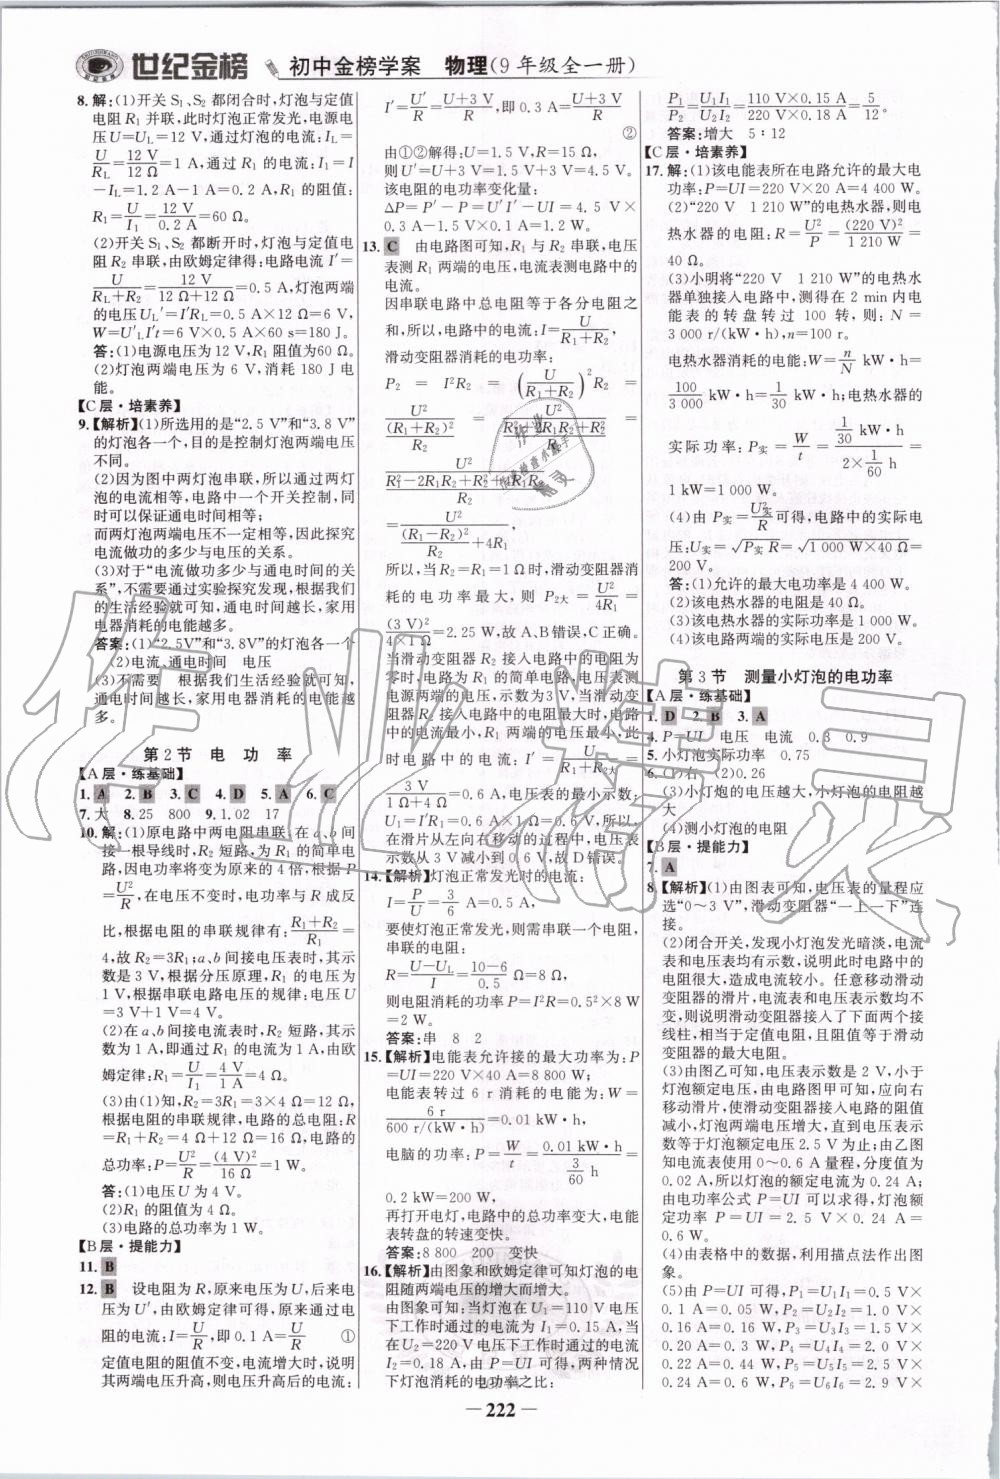 世纪金榜 初中金榜学案 物理(9年级全一册)
8.解:(1)开关 S₁、S₂ 都闭合时,灯泡与定值
电阻 R₁ 并联,此时灯泡正常发光,电源电
压 U=U_L=12 V,通过灯泡的电流:I_L=
U/R_L=12 V/12 Ω=1 A,通过 R₁ 的电流:I₁=I-
I_L=1.2 A-1 A=0.2 A,R₁ 的阻值:
R₁=U/I₁=12 V/0.2 A=60 Ω。
(2)开关 S₁、S₂ 都断开时,灯泡与定值电
阻 R₂ 串联,由欧姆定律得:电路电流 I′=
U/(R_L+R₂)=12 V/(12 Ω+12 Ω)=0.5 A,灯泡两端的
电压 U′_L=I′R_L=0.5 A×12 Ω=6 V,
W=U′_LI′t=6 V×0.5 A×60 s=180 J。
答:(1)电源电压为 12 V,R₁ 阻值为60 Ω。
(2)灯泡两端电压为 6 V,消耗 180 J 电
能。
【C层·培素养】
9.【解析】(1)所选用的是“2.5 V”和“3.8 V”
的灯泡各一个,目的是控制灯泡两端电压
不同。
(2)因为图中两灯泡串联,所以通过两灯
泡的电流相等,电路中一个开关控制,同
时可以保证通电时间相等;
而两灯泡两端电压不一定相等,因此探究
电流做功的多少与电压的关系。
(3)对于“电流做功多少与通电时间的关
系”,不需要通过实验探究发现,根据我们
的生活经验就可知,通电时间越长,家用
电器消耗的电能越多。
答案:(1)“2.5V”和“3.8V”的灯泡各一个
(2)电流、通电时间 电压
(3)不需要 根据我们生活经验,通电时
间越长,家用电器消耗的电能越
多。
第2节 电 功 率
【A层·练基础】
1.A 2.B 3.C 4.D 5.A 6.C
7.大 8.25 800 9.1.02 17
10.解:(1)原电路中两电阻串联,在 a、b 间
接一根导线时,R₂ 短路,为 R₁ 的简单电
路,因电功率将变为原来的 4 倍,根据 P=
U²/R,在电压不变时,电功率与 R 成反
比,根据电阻的串联规律有:(R₁+R₂)/R₁=
4,故 R₂=3R₁;a、b 间接电压表时,其示
数是 3 V,根据分压原理,R₁ 的电压为
1 V,根据串联电路电压的规律:电压 U
=3 V+1 V=4 V。
(2)在 a、b 间接电流表时,R₂ 短路,其示
数为 1 A,即通过 R₁ 的电流为 1 A,由欧
姆定律:R₁=U/I₁=4 V/1 A=4 Ω。
(3)由(1)知,R₂=3R₁=3×4 Ω=12 Ω,
根据电阻的串联规律,电路的总电阻:R
=R₁+R₂=4 Ω+12 Ω=16 Ω,电路的
总功率:P=U²/R=(4 V)²/16 Ω=1 W。
答:(1)电压 U 为 4 V。
(2)R₁ 的阻值为 4 Ω。
(3)电路的总功率为 1 W。
【B层·提能力】
11.B
12.B 设电阻为 R,原来电压为 U,后来电
压为 U′,由欧姆定律可得,原来通过电
阻的电流:I=U/R,即 0.1 A=U/R ①
定值电阻的阻值不变,电流增大时,说明
其两端电压升高,则电压升高后的电流:
I′=U′/R=(U+3 V)/R,即 0.3 A=(U+3 V)/R
②
由①②解得:U=1.5 V,R=15 Ω,
则 U′=U+3 V=1.5 V+3 V=4.5 V。
该电阻的电功率变化量:
ΔP=P′-P=U′I′-UI=4.5 V×
0.3 A-1.5 V×0.1 A=1.2 W。
13.C 由电路图可知,R₁ 与 R₂ 串联,电压
表测 R₁ 两端的电压,电流表测电路中的
电流。
因串联电路中总电阻等于各分电阻之
和,所以,电路中的电流:I=U/(R₁+R₂),
滑动变阻器消耗的电功率:
P₂=I²R₂=(U/(R₁+R₂))²R₂=
U²/((R₁+R₂)²/R₂)=U²/((R₁²+2R₁R₂+R₂²)/R₂)=
U²/((R₁²-2R₁R₂+R₂²+4R₁R₂)/R₂)
=U²/((R₁-R₂)²/R₂+4R₁),
所以,当 R₂=R₁=1 Ω时,滑动变阻器消
耗的电功率最大,则 P₂大=U²/4R₁=
(3 V)²/(4×1 Ω)=2.25 W,故 A、B错误,C正确。
当滑动变阻器 R₂ 接入电路中的电阻为
零时,电路为 R₁ 的简单电路,电压表测
电源两端的电压,示数为3 V;当滑动变
阻器 R₂ 接入电路中的电阻最大时,电路
中的电流最小,R₁ 两端的电压最小,此
时电路中的电流:I=U/(R₁+R₂大)=
3 V/(1 Ω+4 Ω)=0.6 A,电压表的最小示数:
U₁=I′R₁=0.6 A×1 Ω=0.6 V,所以,
在滑片从左向右移动的过程中,电压表
示数从 3 V 减小到 0.6 V,故 D错误。
14.【解析】灯泡正常发光时的电流:
I=P/U=3/6 A=0.5 A,
要使灯泡正常发光,则需串联一个电阻,
串联的电阻:
R=(U-U_L)/I=(10-6)/0.5 Ω=8 Ω,
则电阻消耗的功率 P=I²R=0.5²×8 W
=2 W。
答案:串 8 2
15.【解析】电能表允许接的最大功率为:P
=UI=220 V×40 A=8 800 W;
电能表转过 6 r 消耗的电能为:W=
6 r/(600 r/(kW·h))=0.01 kW·h;
电脑的功率:P=W/t=0.01 kW·h/(3/60 h)=
0.2 kW=200 W,
再打开电灯,电路中的总功率变大,电能
表转盘的转速变快。
答案:8 800 200 变快
16.【解析】由图象和欧姆定律可知灯泡的电
阻随两端电压的增大而增大。
由图象可知:当灯泡在 U₁=110 V 电压
下工作时通过灯丝的电流 I₁=0.15 A,当
在 U₂=220 V 电压下工作时通过的电流
I₂=0.18 A,由 P=UI 可得,两种情况
下灯泡消耗的电功率之比:
P₁/P₂=U₁I₁/U₂I₂=(110 V×0.15 A)/(220 V×0.18 A)=5/12。
答案:增大 5∶12
【C层·培素养】
17.解:(1)该电能表所在电路允许的最大电
功率:P=UI=220 V×20 A=4 400 W。
(2)“220 V 1 210 W”的电热水器,则电
热水器的电阻:R=U²/P=(220 V)²/1 210 W=
40 Ω。
(3)小明将“220 V 1 210 W”的电热水
器单独接入电路中,测得在 2 min 内电
能表的转盘转过 100 转,则:N=
3 000 r/(kW·h),n=100 r。
电热水器消耗的电能:W=n/N kW·h=
100/3 000 kW·h=1/30 kW·h;电热水器的
实际功率:P实=W/t=(1/30 kW·h)/(2×1/60 h)=
1 kW=1 000 W。
(4)由 P实=U²实/R可得,电路中的实际电
压:U实=√(P实R)=√(1 000 W×40 Ω)=
200 V。
答:(1)允许的最大电功率是 4 400 W。
(2)该电热水器的电阻是 40 Ω。
(3)该电热水器的实际功率是 1 000 W。
(4)该电路两端的实际电压是 200 V。
第3节 测量小灯泡的电功率
【A层·练基础】
1.D 2.B 3.A
4.P=UI 电压 电流 0.3 0.9
5.小灯泡实际功率 0.75
6.(1)右 (2)0.26
(3)小灯炮的电压越大,小灯泡的电阻越
大
(4)测小灯泡的电阻
【B层·提能力】
7.A
8.【解析】(1)由图表可知,电压表的量程应
选“0~3 V”,滑动变阻器“一上一下”连
接。
(2)闭合开关,发现小灯泡发光暗淡,电流
表和电压表示数很小,说明此时电路中的
电阻很大,造成电流较小。任意移动滑动
变阻器的滑片,电流表和电压表示数均不
变,则说明滑动变阻器接入了下面两个接
线柱,相当于定值电阻,且阻值等于滑动
变阻器的最大电阻。
(3)由图乙可知,电压表示数是 2 V,小于
灯泡额定电压,由电路图甲可知,应向右
移动滑片,使滑动变阻器接入电路的阻值
减小,灯泡两端电压增大,直到电压表示
数等于灯泡额定电压 2.5 V 为止;由乙图
知电流表使用 0~0.6 A 量程,分度值为
0.02 A,所以灯泡的额定电流为 0.24 A;
由电功率公式 P=UI 可以求得,灯泡额
定功率 P=UI=2.5 V×0.24 A=
0.6 W。
(4)由表格中的数据,利用描点法作出图
象。
(5)由 P=UI 可得,P₁=U₁I₁=0.5 V×
0.1 A=0.05 W,P₂=U₂I₂=1.0 V×
0.16 A=0.16 W,P₃=U₃I₃=1.5 V×
0.20 A=0.3 W,P₄=U₄I₄=2.0 V×
0.22 A=0.44 W,P₅=U₅I₅=2.5 V×
0.24 A=0.6 W,P₆=U₆I₆=2.9 V×
— 222 —